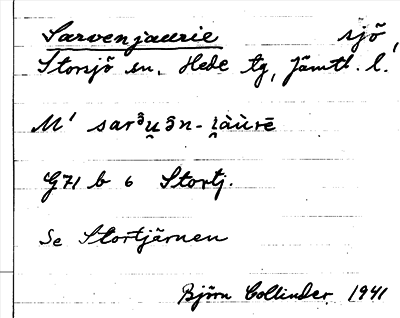 Sarvenjaurie sjö,
Storsjö sn. Hede tg, Jämtl. l.
M' sarᵌu̯ɜn-l̯àùrē
G71 b 6 Stortj.
Se Stortjärnen
Björn Collinder 1941